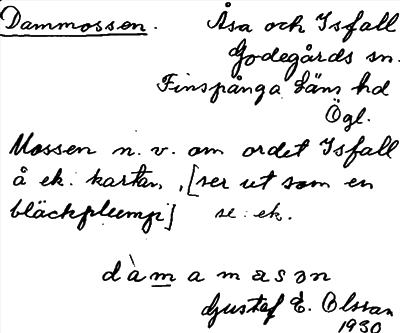 Dammossen. Åsa och Isfall
Godegårds sn.
Finspånga läns hd
Ögl.
Mossen n. v. om ordet Isfall
å ek. kartan, [ser ut som en
bläckplump] se: ek.
dàmamasən
Gustaf E. Olsson
1930